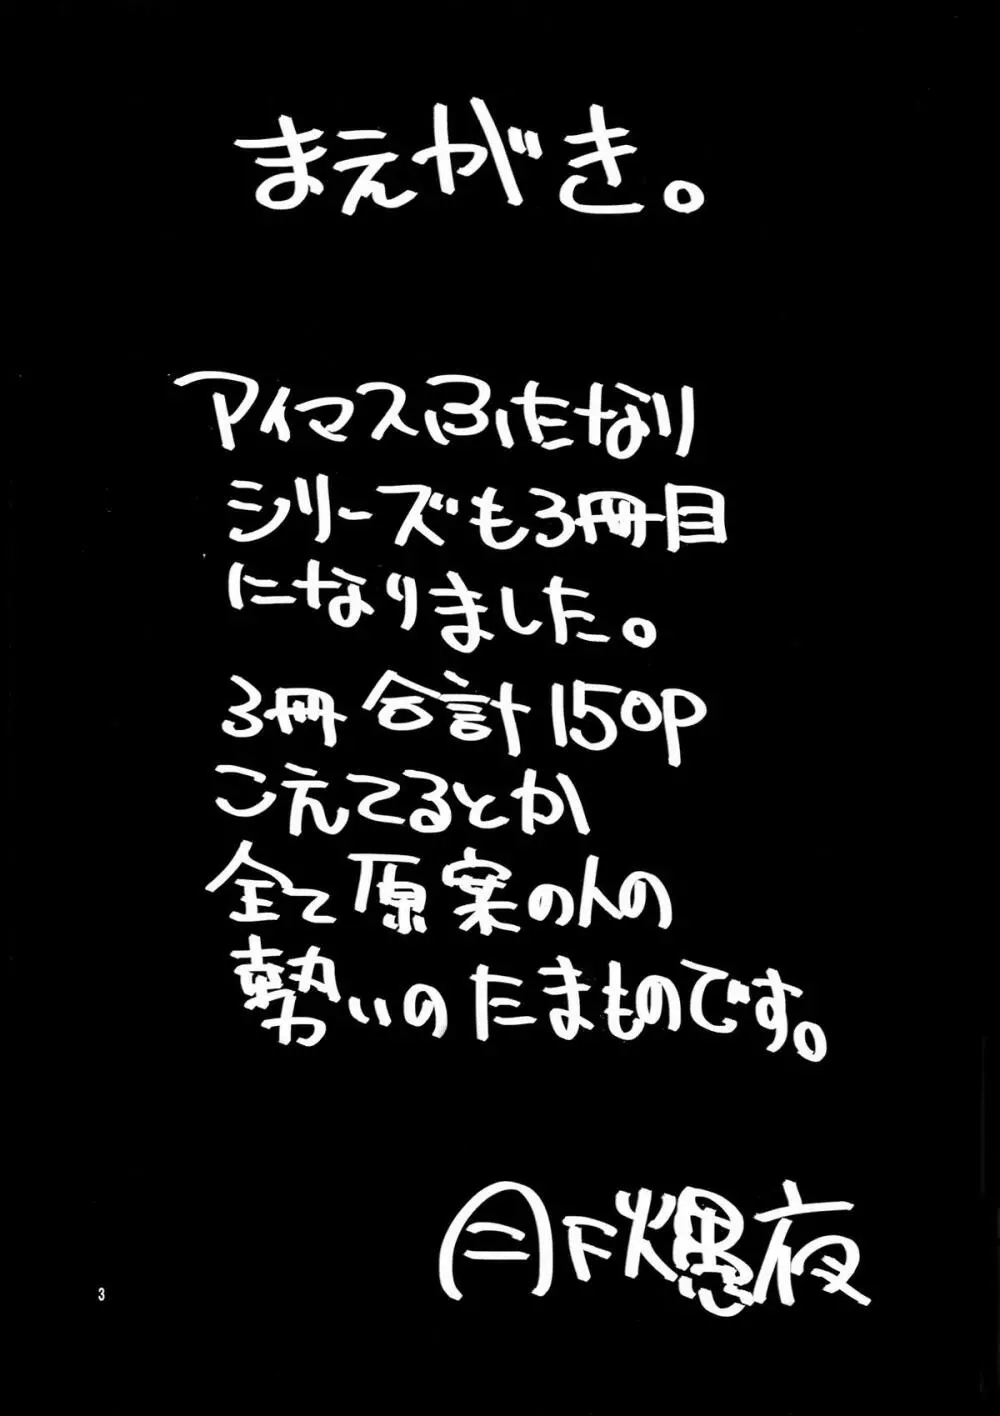 まえがき。
アイマスふたなり
シリーズも3冊目
になりました。
3冊 合計150P
こえてるとか
全て原案の人の
勢いのたまものです。
月下熄夜
3